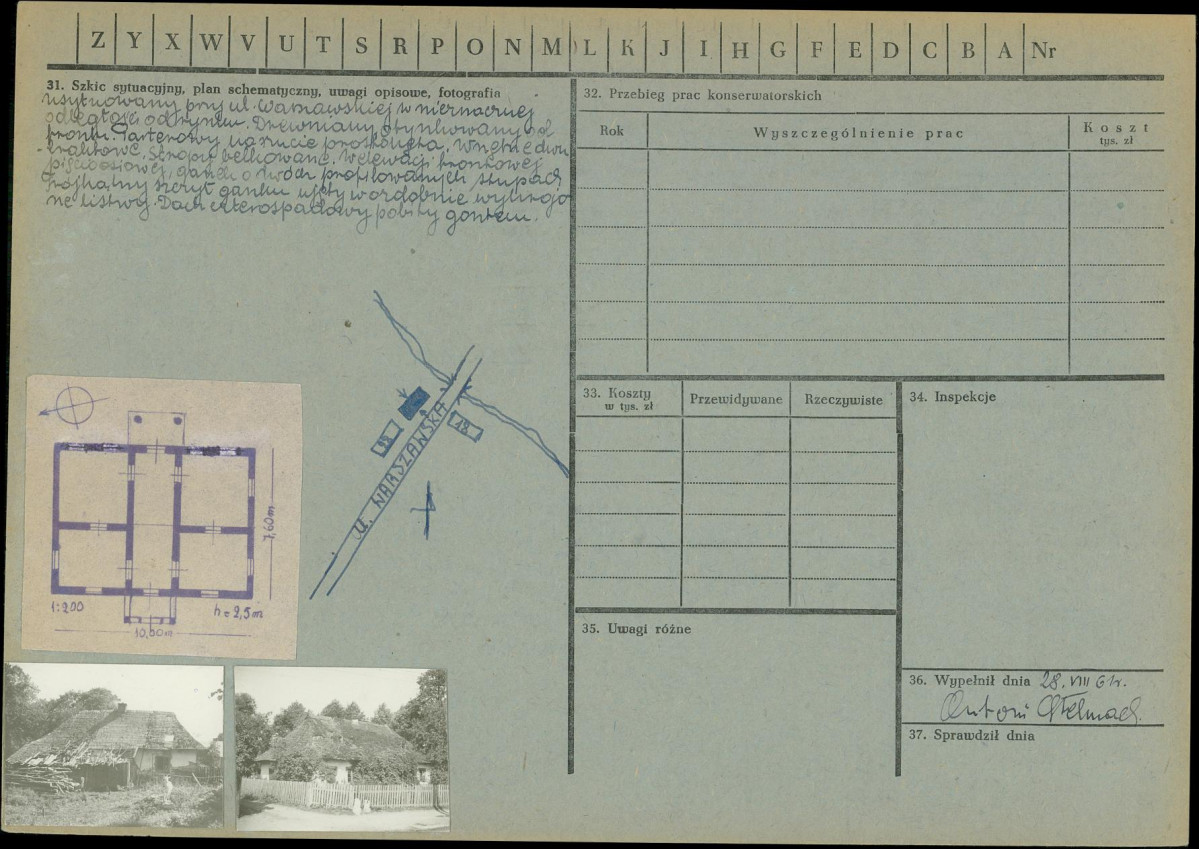 Z Y X W V U T S R P O N M L K J I H G F E D C B A Nr
31. Szkic sytuacyjny, plan schematyczny, uwagi opisowe, fotografia
usytuowany przy ul. Warszawskiej w nieznacznej
odległości od rynku. Drewniany otynkowany od
frontu. Parterowy na rzucie prostokąta. Wnętrze dwu
traktowe. Stropy belkowane. W elewacji frontowej
pięcioosiowej, ganek o dwóch profilowanych słupach
trójkątny szczyt ganku ujęty w ozdobnie
listwy. Dach czterospadowy pobity gontem.
Ul. WARSZAWSKA
18
1:200
h = 2,5 m
7,60 m
10,60 m
32. Przebieg prac konserwatorskich
Rok
Wyszczególnienie prac
Koszt
tys. zł
33. Koszty
w tys. zł
Przewidywane
Rzeczywiste
34. Inspekcje
35. Uwagi różne
36. Wypełnił dnia 28. VIII 61 r.
Antoni Stelmach
37. Sprawdził dnia